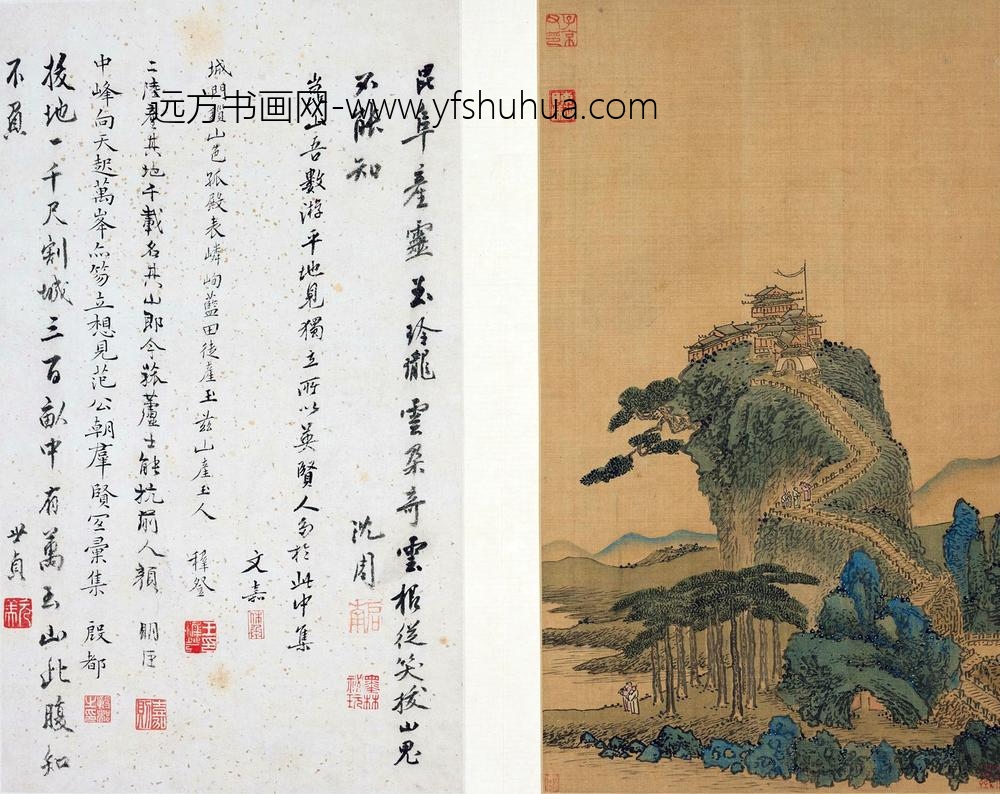 昆阜產靈玉玲瓏雲朵奇雲根從笑拔山鬼
不能知 沈周
崑山吾數游平地見獨立所以英賢人多於此中集
文嘉
城門鎖山色孤殿表嶙峋藍田徒產玉茲山產玉人 穉登
二陸產其地千載名其山即今菰蘆士能抗前人顏 明臣
中峰向天起萬峯亦笏立想見范公朝羣賢宜彙集 殷都
拔地一千尺割城三百畝中有萬玉山此腹知
不負 世貞
墨林祕玩
子京父印
远方书画网-www.yfshuhua.com